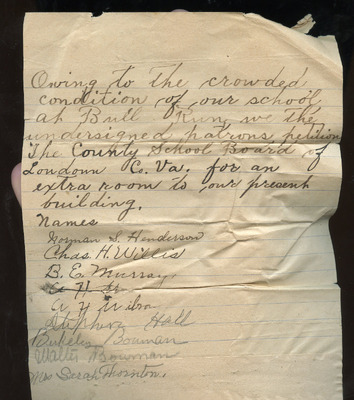 Owing to the crowded
condition of our school
at Bull Run, we the
undersigned patrons petition
The County School Board of
Loudoun C. Va. for an
extra room to our present
building.
Names
Norman S. Henderson
Chas H. Willis
B. E. Murray
Hall
Bowman
Walter Bowman
Mrs Serah Thornton.